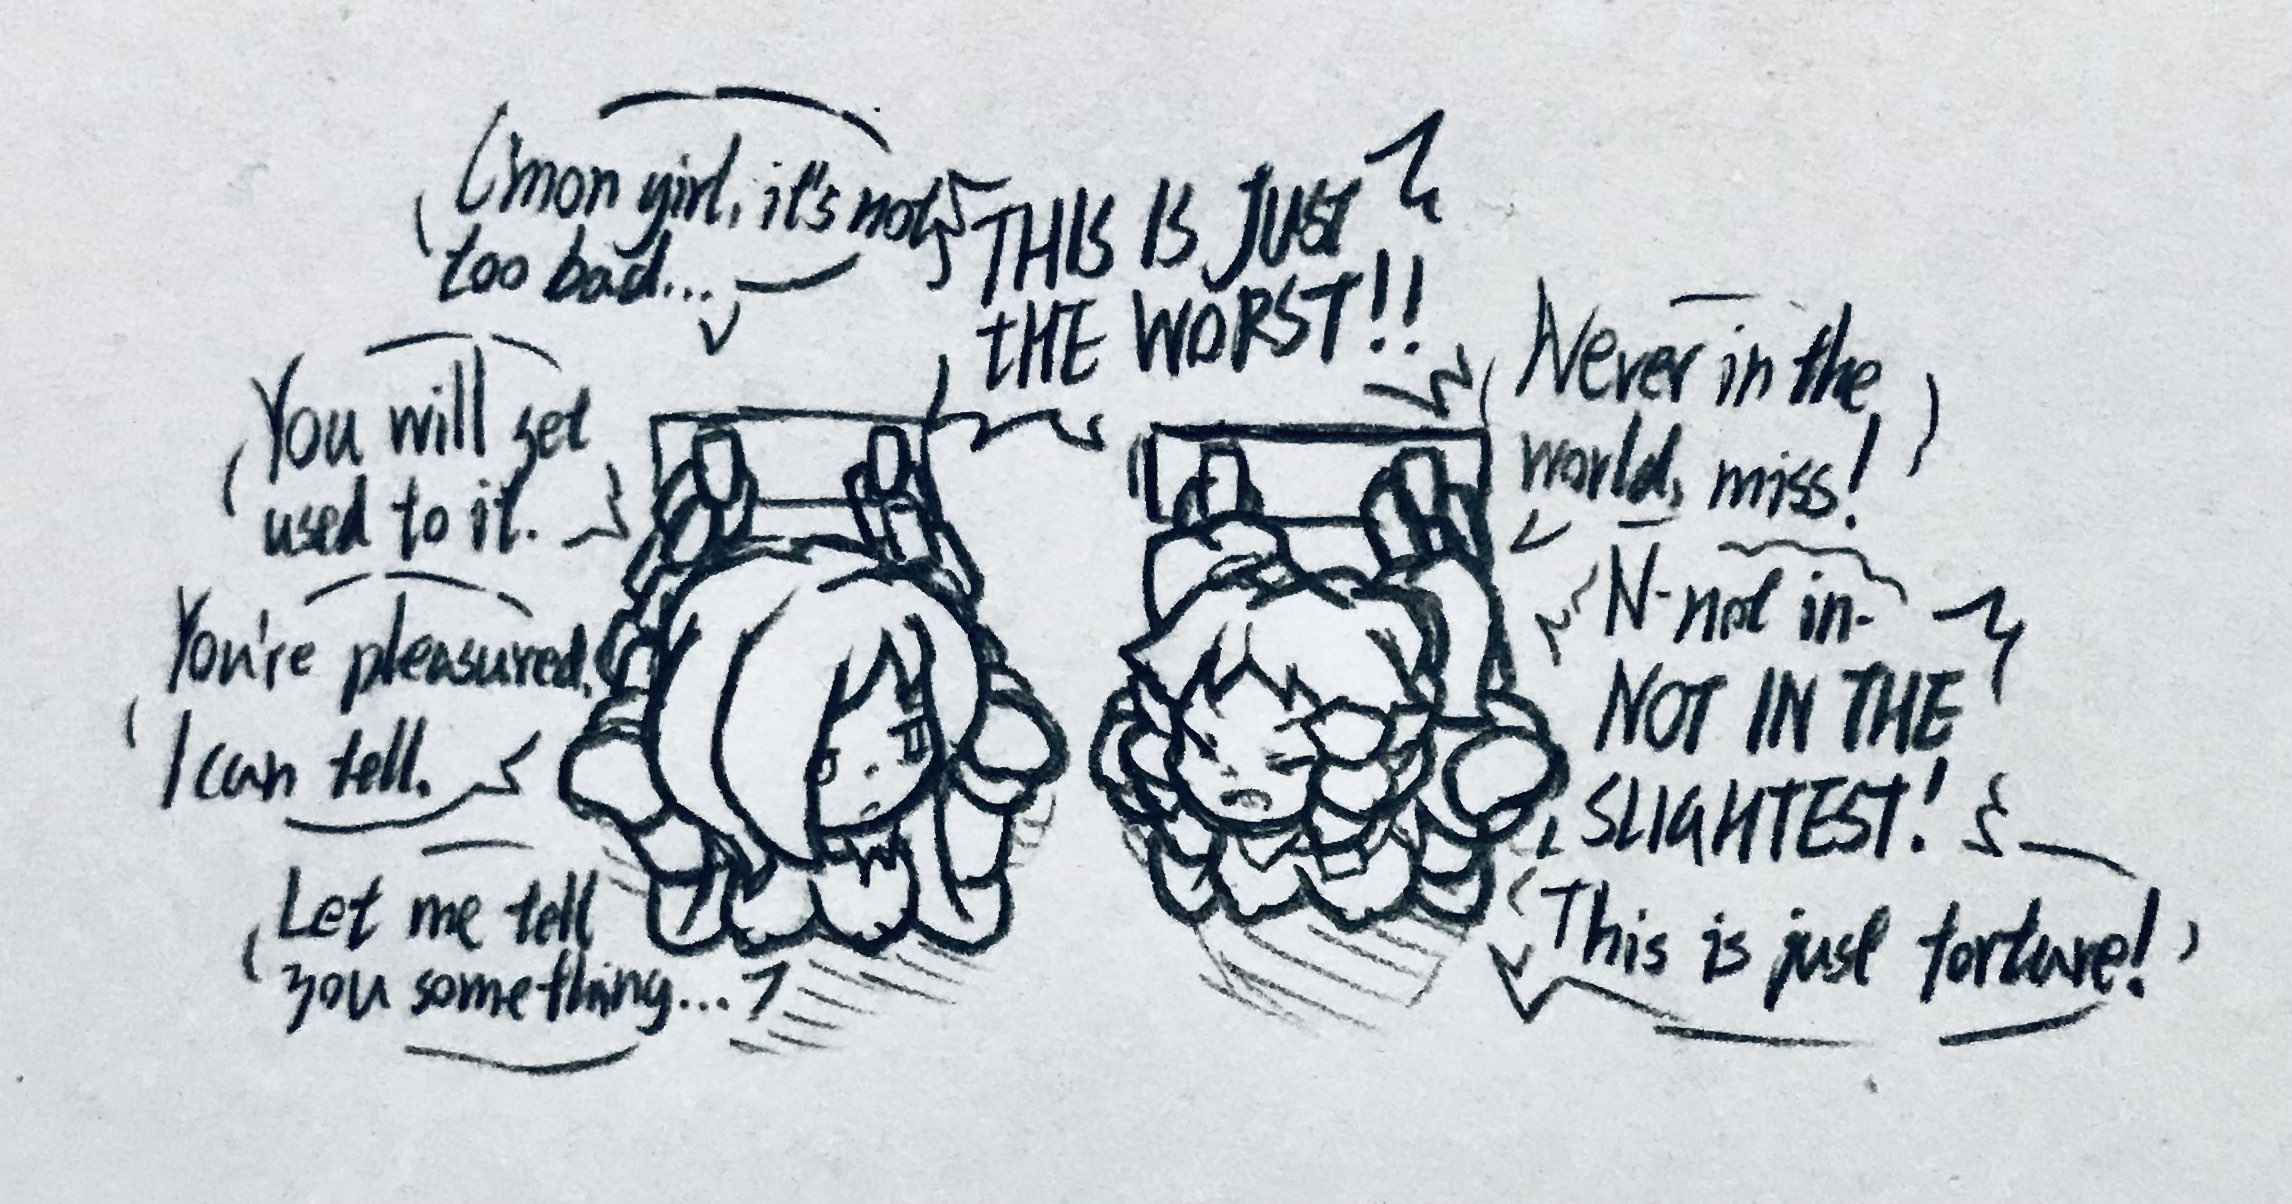 C'mon girl, it's not
too bad...
THIS IS JUST
tHE WORST!!
You will get
used to it.
Never in the
world, miss!
You're pleasured,
I can tell.
N-not in-
NOT IN THE
SLIGHTEST!
Let me tell
you something...
This is just torture!